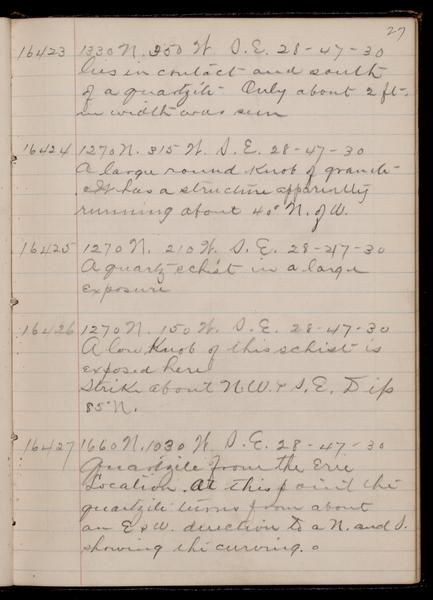 27
16423 1330 N. 350 W. S.E. 28-47-30
lies in contact and south
of a quartzite Only about 2 ft.
in width was seen
16424 1270 N. 315 W. S.E. 28-47-30
A large round Knob of granite
It has a structure apparently
running about 40° N. of W.
16425 1270 N. 210 W. S.E. 28-47-30
A quartz schist in a large
exposure
16426 1270 N. 150 W. S.E. 28-47-30
A low Knob of this schist is
exposed here
Strike about N.W. & S.E. Dip
85° N.
16427 1660 N. 1030 W. S.E. 28-47-30
Quartzite from the Erie
Location. At this point the
quartzite turns from about
an E & W. direction to a N. and S.
showing the curving.